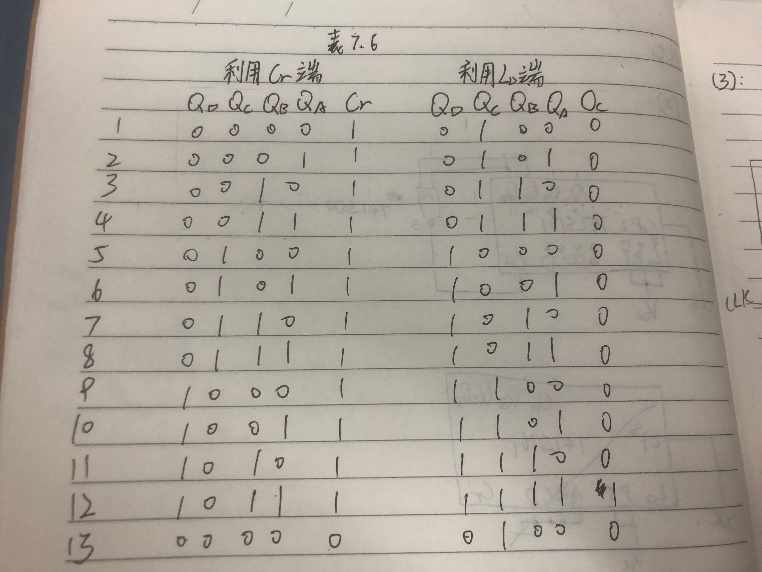 表7.6
利用Cr端 利用LD端
QD QC QB QA Cr QD QC QB QA OC
1 0 0 0 0 1 0 1 0 0 0
2 0 0 0 1 1 0 1 0 1 0
3 0 0 1 0 1 0 1 1 0 0
4 0 0 1 1 1 0 1 1 1 0
5 0 1 0 0 1 1 0 0 0 0
6 0 1 0 1 1 1 0 0 1 0
7 0 1 1 0 1 1 0 1 0 0
8 0 1 1 1 1 1 0 1 1 0
9 1 0 0 0 1 1 1 0 0 0
10 1 0 0 1 1 1 1 0 1 0
11 1 0 1 0 1 1 1 1 0 0
12 1 0 1 1 1 1 1 1 1 1
13 0 0 0 0 0 0 1 0 0 0
(3):
CLK